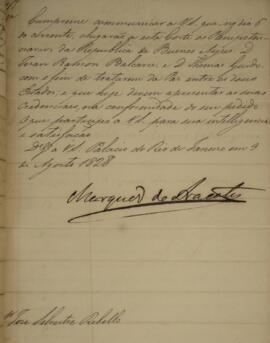 Cumpreme communicar a VS. que no dia 6
do corrente, chegarão a esta Corte os Plenipotenciarios
da Republica de Buenos Ayres, D.
Juan Ramon Balcarce, e D. Thomas Guido
com o fim de tratarem da Paz entre os dous
Estados, e que hoje devem apresentar as suas
Credenciaes, na conformidade do seu pedido
O que participo a VS. para sua intelligencia,
e satisfação
Ds. Ge. a VS. Palacio do Rio de Janeiro em 9
de Agosto 1828
Marquez do Aracaty
Sr. José Silvestre Rebello